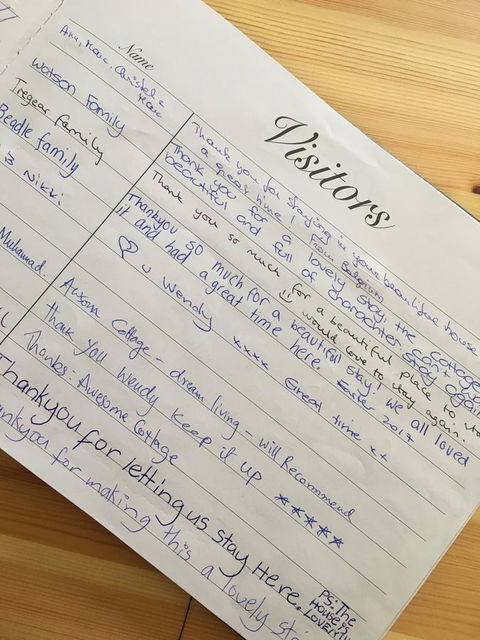 Visitors
Name
Ann, Marc, Christel &
Marc
Thank you for staying in your beautiful house
a great time! from Belgium
Watson Family
Thank you for a lovely stay, the cottage
beautiful and full of character
stay again
Tregear family
Thank you so much for a beautiful place to
would love to stay again.
Beadle family
Thankyou so much for a beautiful stay! we all loved
it and had a great time here. Easter 2017
& Nikki
♡ u Wendy xxxx Great time xx
Muhamad.
Awsom Cottage - dream living - will Recommend
thank you Wendy keep it up ★★★★★
Thanks. Awesome Cottage
Thankyou for letting us stay Here.
PS: The
House is
LOVERLY
Thankyou for making this a lovely